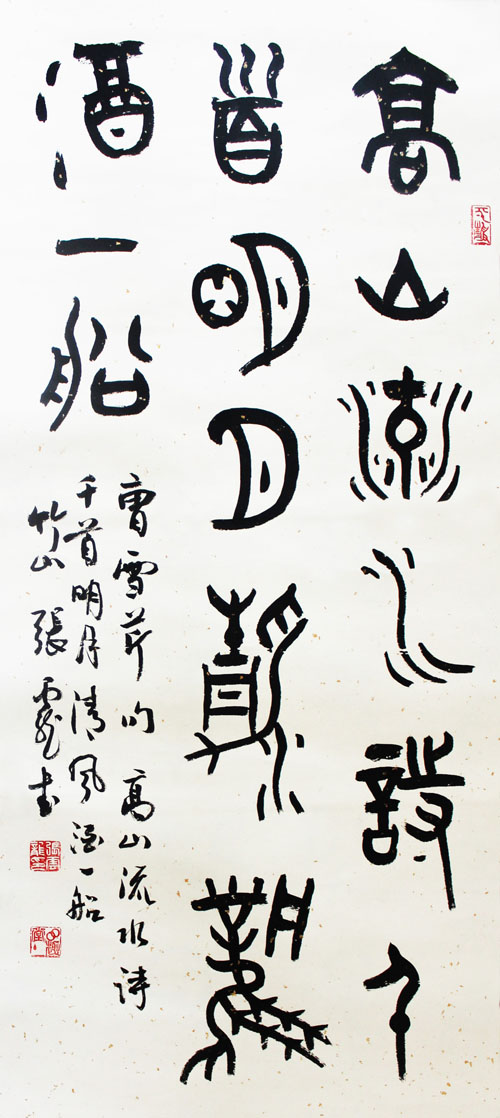 高山流水詩千
首明月清風
酒一船
曹雪芹句 高山流水詩
千首明月清風酒一船
竹山張書